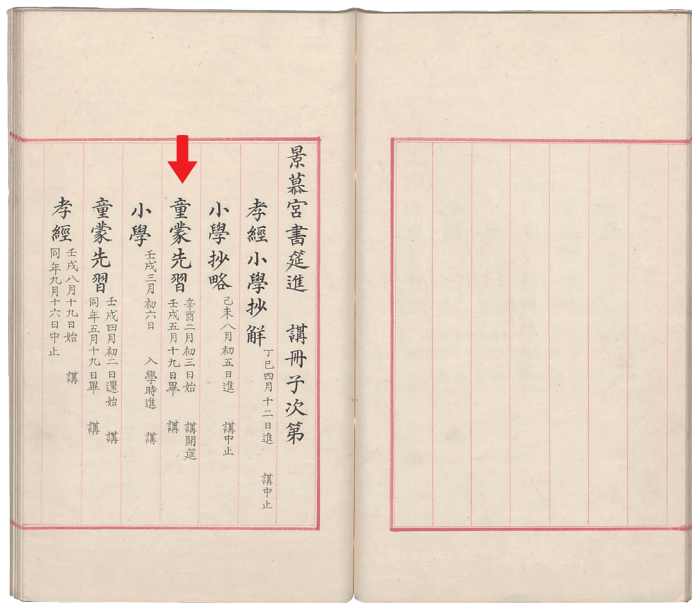 景慕宮書筵進　講冊子次第
孝經小學抄解 丁巳四月十二日進　講中止
小學抄略 己未八月初五日進　講中止
童蒙先習 辛酉二月初三日始　講開筵
壬戌五月十九日畢　講
小學 壬戌三月初六日　入學時進　講
童蒙先習 壬戌四月初二日還始　講
同年五月十九日畢　講
孝經 壬戌八月十九日始　講
同年九月十六日中止